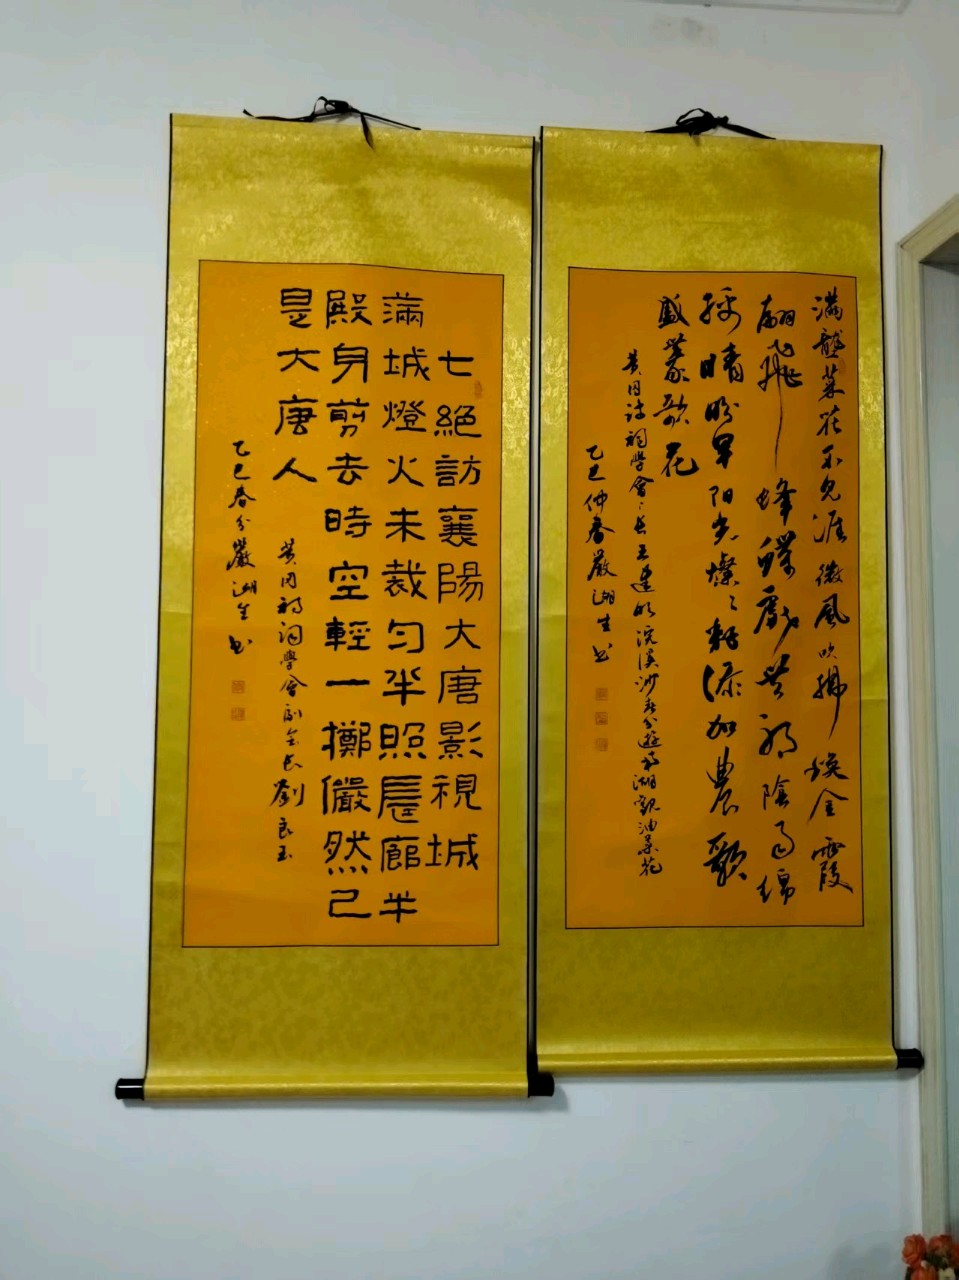 滿壟菜花不見涯微風吹拂綻金霞
翩飛蜂蝶戲陰雨綿
綿晴盼早阳光燦〻耕添加農歌
盛歌花
黄冈诗詞學會〻長王建明浣溪沙春分遊湖觀油菜花
乙巳仲春嚴湖生书
七絕訪襄陽大唐影視城
滿城燈火未裁勻半照晨廊半
殿身剪去時空輕一擲儼然已
是大唐人
黄冈诗词學會副会长劉良玉
乙巳春分嚴湖生书